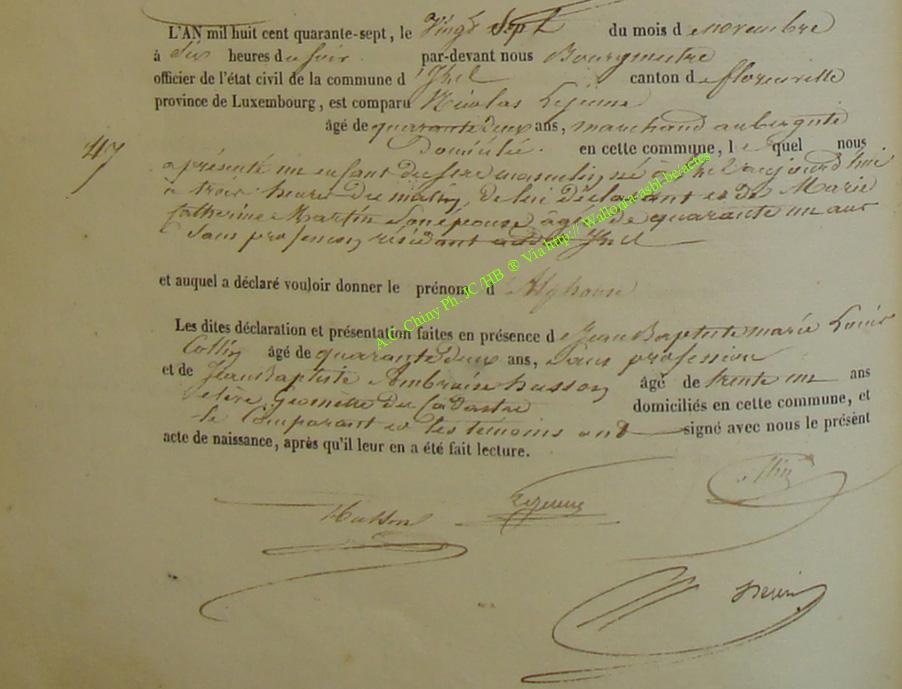 L'AN mil huit cent quarante-sept, le vingt sept du mois de novembre
à six heures du soir par-devant nous Bourgmestre
officier de l'état civil de la commune d'Izel canton de florenville
province de Luxembourg, est comparu Nicolas Lejeune
âgé de quarante deux ans, marchand aubergiste
Domicilié en cette commune, lequel nous
47
a présenté un enfant du sexe masculin né à Izel aujourd'hui
à trois heures du matin, de lui déclarant et de Marie
Catherine Martin son épouse âgée de quarante un ans
sans profession résidant Izel
et auquel a déclaré vouloir donner le prénom d Alphonse
Les dites déclaration et présentation faites en présence de Jean Baptiste marie Louis
Collin âgé de quarante deux ans, sans profession
et de Jean Baptiste Ambroise husson âgé de trente un ans
géomètre du Cadastre domiciliés en cette commune, et
le Comparant et les temoins ont signé avec nous le présent
acte de naissance, après qu'il leur en a été fait lecture.
Husson Lejeune
A.C. Chiny Ph. JC /HB ® Via http://Wallonia-asbl-be/actes